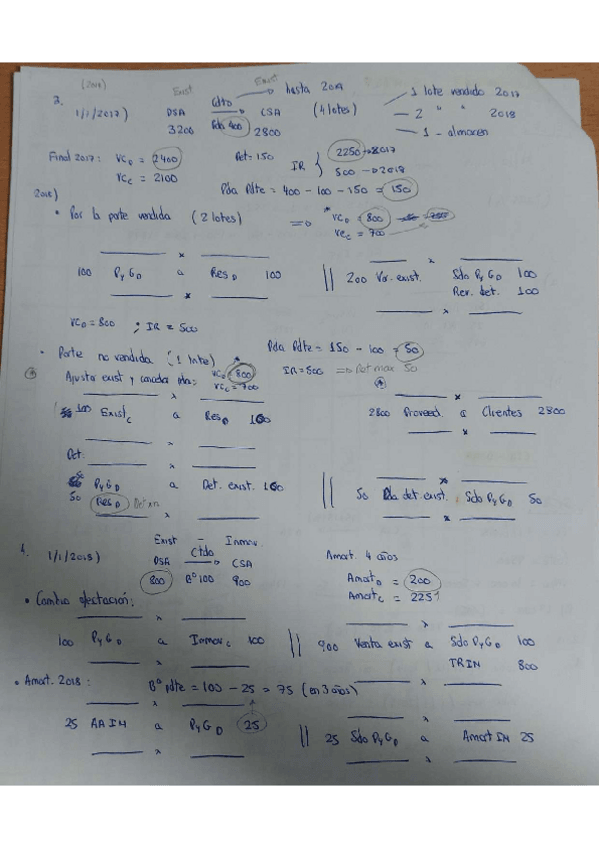 (2017) Exist Exist hasta 2019
3. 1/1/2017) DSA Cdto CSA (4 lotes) 1 lote vendido 2017
3200 Pda 400 2800 2 " " 2018
1 - almacén
Final 2017: VCD = 2400 Det = 150 IR { 2250 → 2017
VCC = 2100 500 → 2018
Pda Pdte = 400 - 100 - 150 = 150
2018)
• Por la parte vendida (2 lotes) => VCD = 800
VCC = 700
100 PyGD a ResD 100 || 200 Var. exist. Sdo PyGD 100
Rev. det. 100
VCD = 800 ; IR = 500
• Parte no vendida (1 lote) Pda Pdte = 150 - 100 = 50
Ajusta exist y cancela pda: VCD = 800 IR = 500 => Det max 50
VCC = 700
100 ExistC a ResD 100 2800 Proveed a Clientes 2800
Det.
PyGD a Det. exist. 100 || 50 Pda det. exist. Sdo PyGD 50
50 ResD
4. Exist Inmov.
1/1/2018) DSA Ctdo CSA Amort. 4 años
800 Bº 100 900 AmortD = 200
AmortC = 225
• Cambio afectación:
100 PyGD a InmovC 100 || 900 Venta exist a Sdo PyGD 100
TRIN 800
• Amort. 2018: Bº pdte = 100 - 25 = 75 (en 3 años)
25 AAIN a PyGD 25 || 25 Sdo PyGD a Amort IN 25